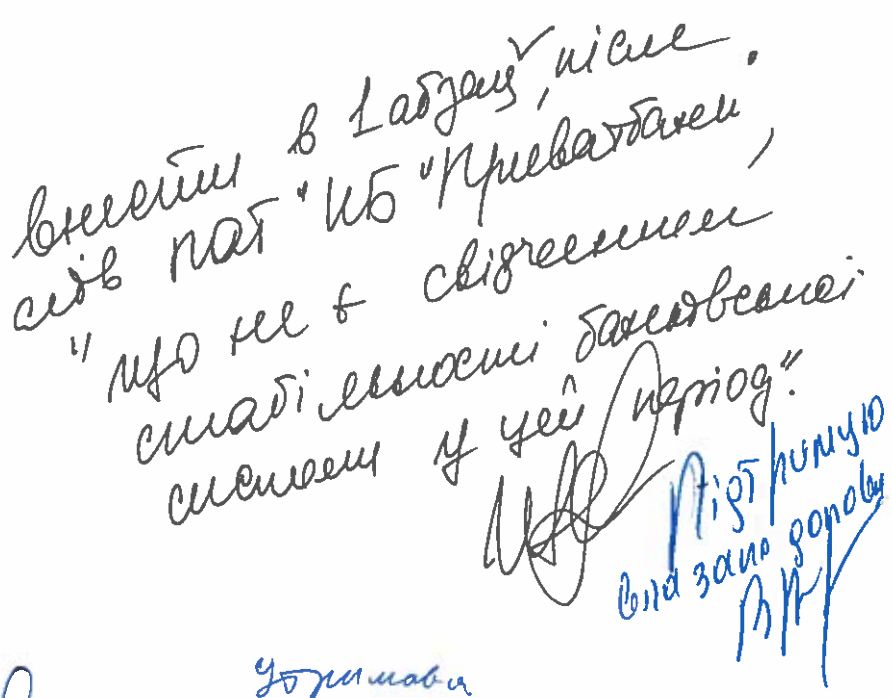 внести в 1 абзац, після
слів ПАТ "КБ "Приватбанк",
"що не є свідченням
стабільності банківської
системи у цей період".
Підтримую
вказано допов
Утримався